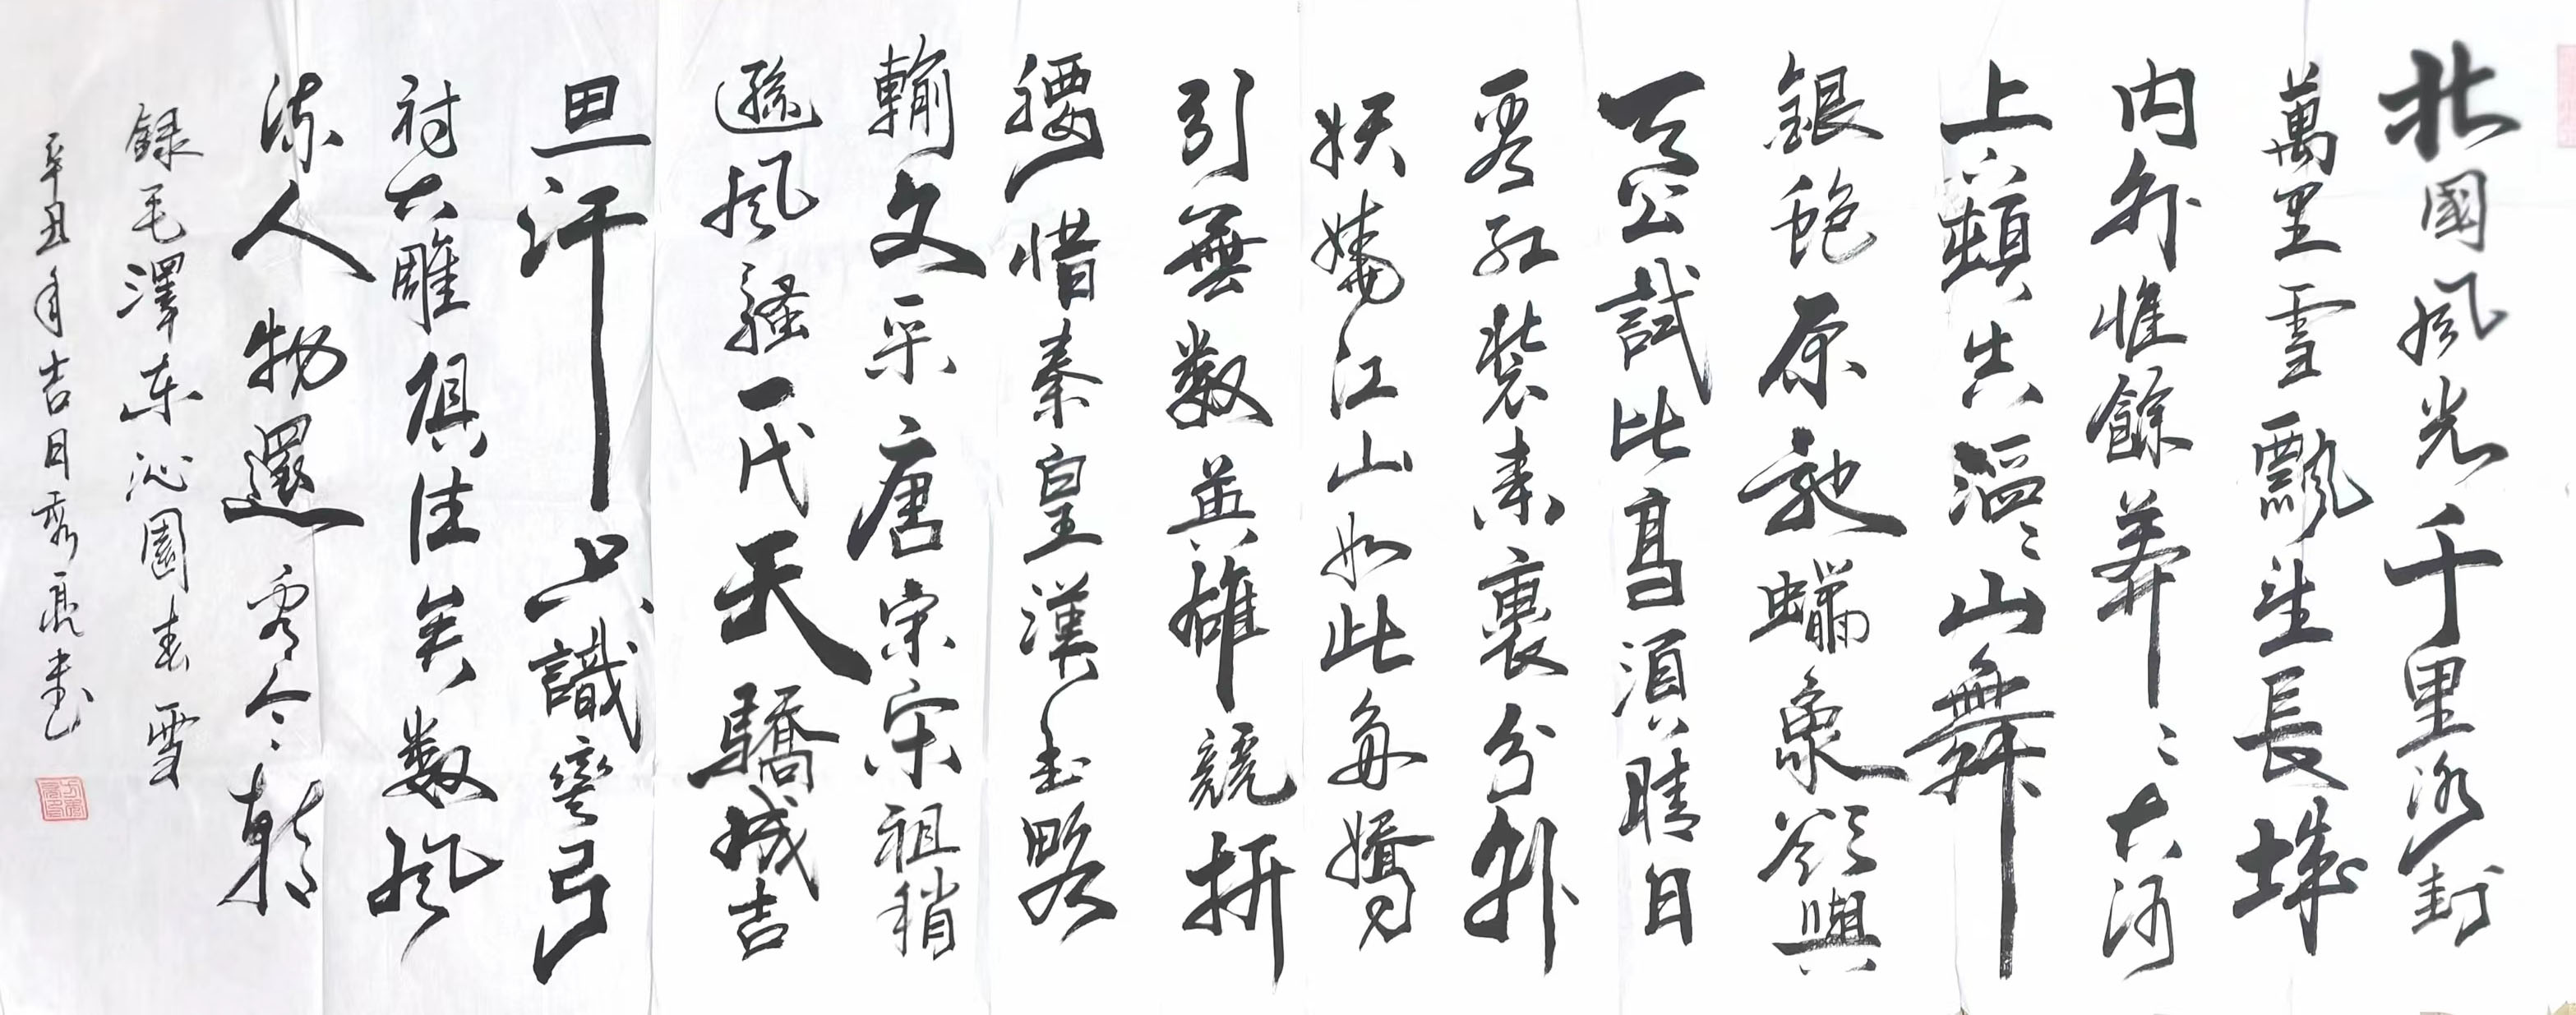 北國風光千里冰封
萬里雪飄望長城
内外惟餘莽〻大河
上下頓失滔〻山舞
銀蛇原馳蠟象欲與
天公試比高須晴日
看紅裝素裹分外
妖嬈江山如此多嬌
引無數英雄競折
腰惜秦皇漢武略
輸文采唐宗宋祖稍
遜風騷一代天驕成吉
思汗只識彎弓
射大雕俱往矣數風
流人物還看今朝
録毛澤东沁園春雪
辛丑年吉日秀亮書